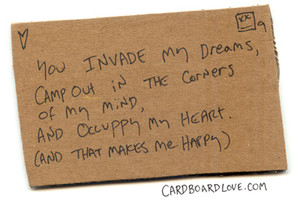 You INVADE my Dreams,
CAMP OUT IN THE CORNERS
of my MIND,
AND OCCUPPY my HEART.
(AND THAT MAKES me HAPPY)
CARDBOARDLOVE.COM